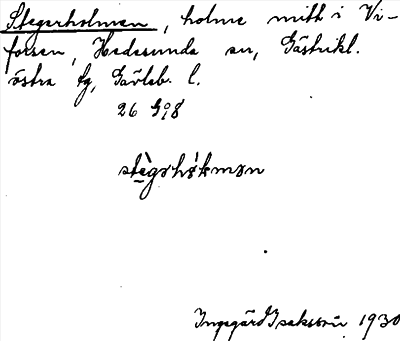 Stegerholmen, holme mitt i Vi-
forsen, Hedesunda sn, Gästrikl.
östra fg, Gävleb. l.
26 G:8
Ingegärd Isaksson 1930